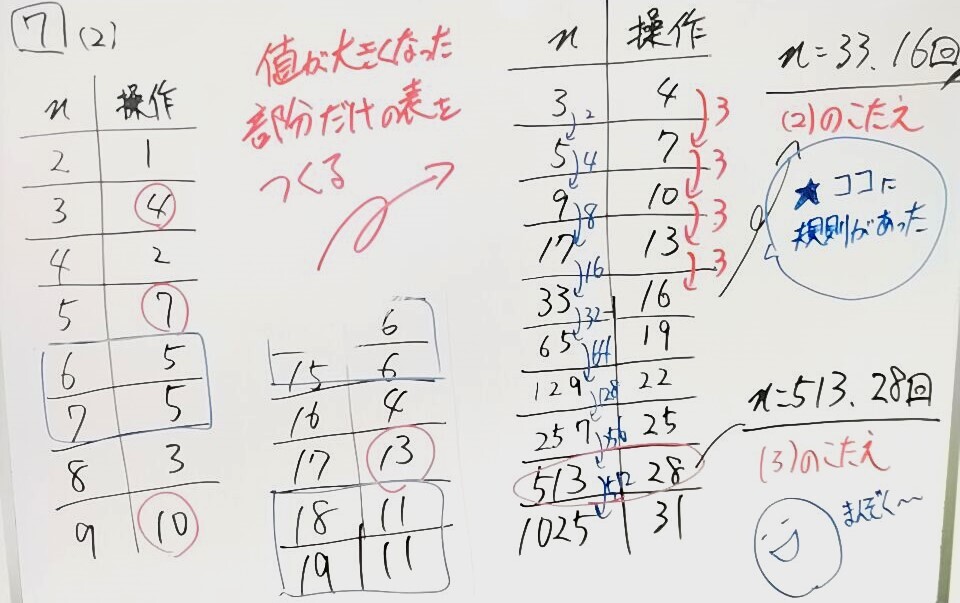 7 (2)
n 操作
2 1
3 4
4 2
5 7
6 5
7 5
8 3
9 10
値が大きくなった
部分だけの表を
つくる
6
15 6
16 4
17 13
18 11
19 11
n 操作
3 4
2 3
5 7
4 3
9 10
8 3
17 13
16 3
33 16
32
65 19
64
129 22
128
257 25
256
513 28
512
1025 31
n=33、16回
(2)のこたえ
★ ココに
規則があった
n=513、28回
(3)のこたえ
まんぞく〜